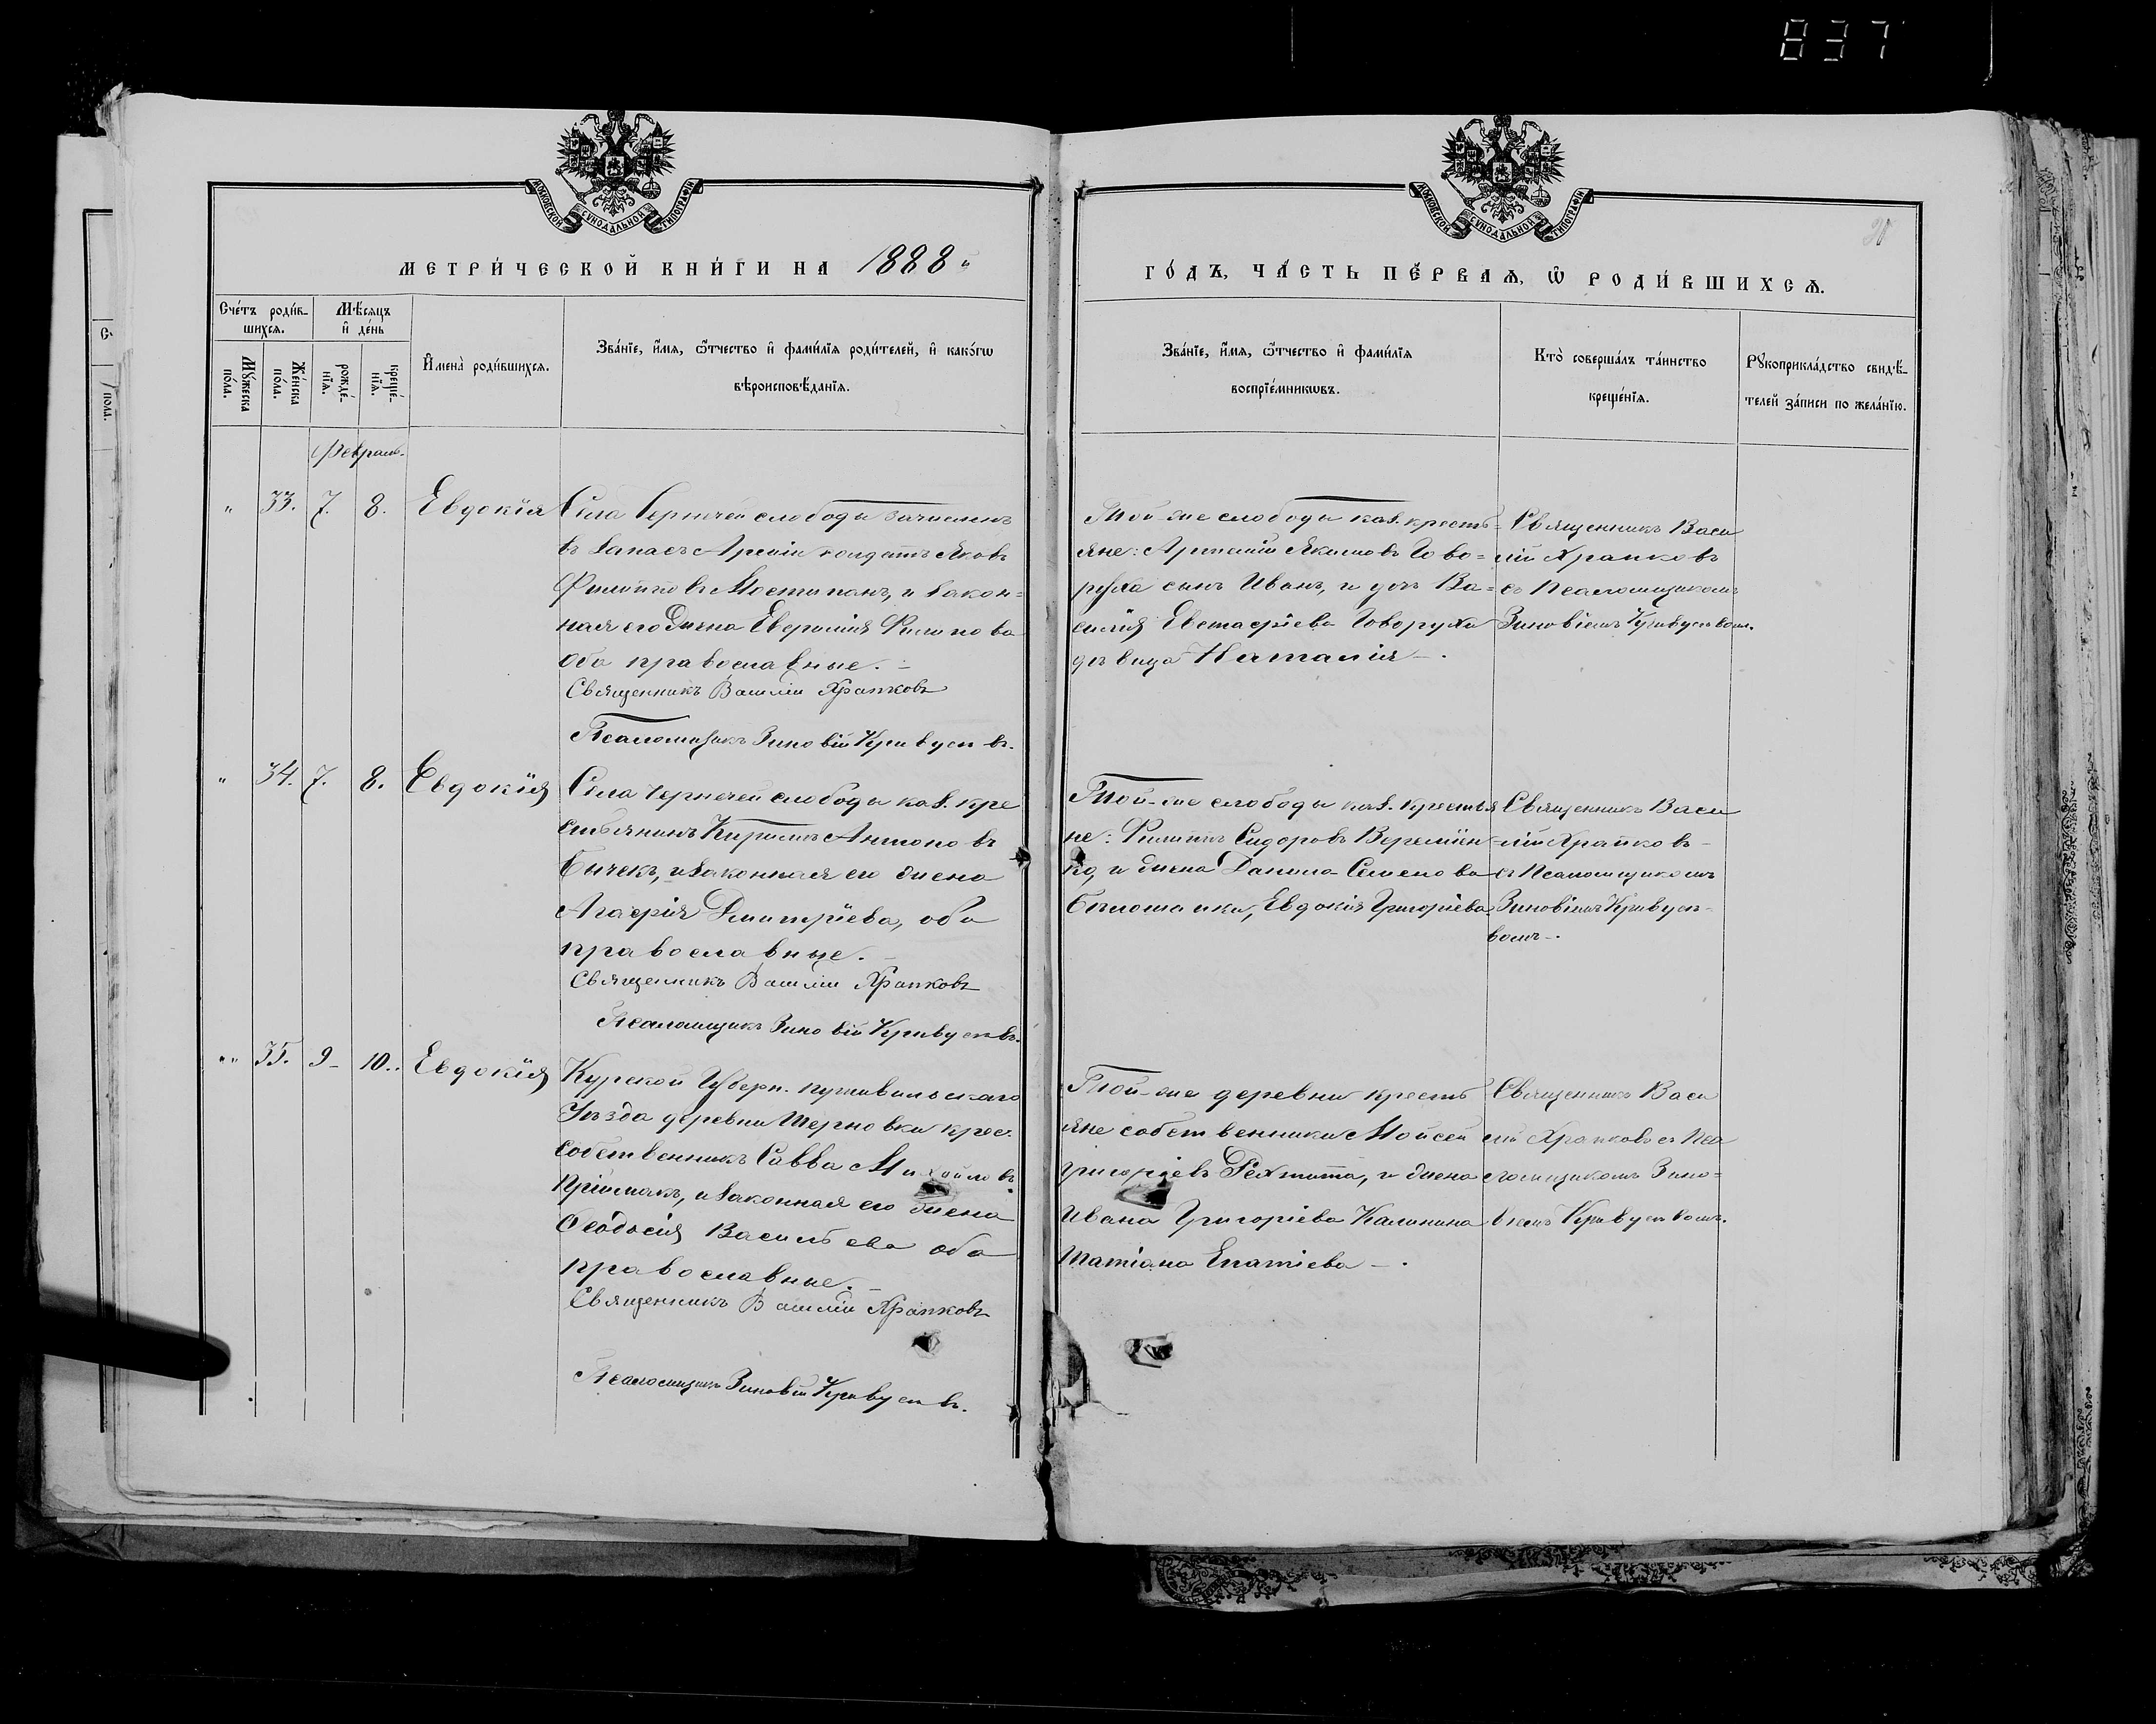 837
МОСКОВСКОЙ СѴНОДАЛЬНОЙ ТИПОГРАФІИ
МОСКОВСКОЙ СѴНОДАЛЬНОЙ ТИПОГРАФІИ
МЕТРИ́ЧЕСКОЙ КНИ́ГИ НА 1888
ГО́ДЪ, ЧА́СТЬ ПЕ́РВАѦ, Ѡ҆ РОДИ́ВШИХСѦ.
Сче́тъ роди́в-
шихсѧ.
Мѣ́сѧцъ
и҆ де́нь
Мꙋ́жеска
по́ла.
Же́нска
по́ла.
рожде́-
нїѧ.
креще́-
нїѧ.
И҆мена̀ роди́вшихсѧ.
Зва́нїе, и҆́мѧ, ѻ҆́тчество и҆ фами́лїѧ роди́телей, и҆ како́гѡ
вѣроисповѣ́данїѧ.
Зва́нїе, и҆́мѧ, ѻ҆́тчество и҆ фами́лїѧ
воспрїе́мникѡвъ.
Кто̀ соверша́лъ та́инство
креще́нїѧ.
Рꙋкоприкла́дство свидѣ́-
телей за́писи по жела́нїю.
Февраль.
" 33. 7. 8. Евдокія
Села Чернечей слободы зачислен
въ запасъ Арміи солдатъ Яковъ
Филиповъ и закон-
ная его жена Филипова
оба православные.
Священникъ Василій Храпковъ
Псаломщикъ Зиновій Кривусевъ.
Той-же слободы каз. кресть-
яне: Якимовъ Гово-
руха сынъ Иванъ, и дочь Ва-
силія Евстафіева Говоруха
дѣвица Наталія.
Священникъ Васи
лій Храпковъ
съ Псаломщикомъ
Зиновіемъ Кривусевом.
" 34. 7. 8. Евдокія
Села Чернечей слободы каз. кре
стьянинъ Антоновъ
Бичекъ, и законная его жена
Агафія Дмитріева, оба
православные.
Священникъ Василій Храпковъ
Псаломщикъ Зиновій Кривусевъ.
Той-же слободы каз. крестья
не: Филиппъ Сидоровъ Веремѣен
ко, и жена Данила Семенова
Евдокія Григоріева.
Священникъ Васи
лій Храпковъ
съ Псаломщикомъ
Зиновіемъ Кривусе-
вомъ.
" 35. 9 10. Евдокія
Курской Губерн. Путивльскаго
Уѣзда деревни Терновки крес.
собственникъ Савва Михайловъ
Пріймакъ, и законная его жена
Ѳеодосія Васильева оба
православные.
Священникъ Василій Храпковъ
Псаломщикъ Зиновій Кривусевъ.
Той-же деревни кресть
яне собственники Мойсей
Григоріевъ и жена
Ивана Григоріева Калинина
Татіана Ипатіева.
Священникъ Васи
лій Храпковъ съ Пса
ломщикомъ Зино-
віемъ Кривусевомъ.